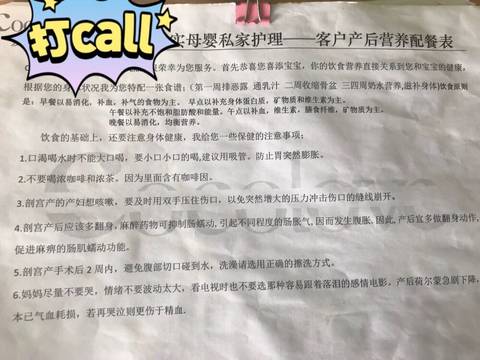 Coc
打call
实母婴私家护理——客户产后营养配餐表
很荣幸为您服务。首先恭喜您喜添宝宝，你的饮食营养直接关系到您和宝宝的健康，
根据您的身体状况我为您特配一张食谱：（第一周排恶露 通乳汁 二周收缩骨盆 三四周奶水营养,滋补身体)饮食原则
是：早餐以易消化，补血，补气的食物为主。 早点以补充身体蛋白质，矿物质和维生素为主。
午餐以补充不饱和脂肪酸和能量。午点以补血，维生素，膳食纤维，矿物质为主。
晚餐以易消化，均衡营养。
饮食的基础上，还要注意身体健康，我给您一些保健的注意事项；
1.口渴喝水时不能大口喝，要小口小口的喝,建议用吸管。防止胃突然膨胀。
2.不要喝浓咖啡和浓茶。因为里面含有咖啡因。
3.剖宫产的产妇想咳嗽，要及时用双手压住伤口，以免突然增大的压力冲击伤口的缝线崩开。
4.剖宫产后应该多翻身,麻醉药物可抑制肠蠕动,引起不同程度的肠胀气,因而发生腹胀、因此,产后宜多做翻身动作,
促进麻痹的肠肌蠕动功能。
5.剖宫产手术后 2 周内，避免腹部切口碰到水，洗澡请选用正确的擦洗方式。
6.妈妈尽量不要哭，情绪不要波动太大，看电视时也不要选那种容易跟着落泪的感情电影。产后荷尔蒙急剧下降，
本已气血耗损，若再哭泣则更伤于精血.